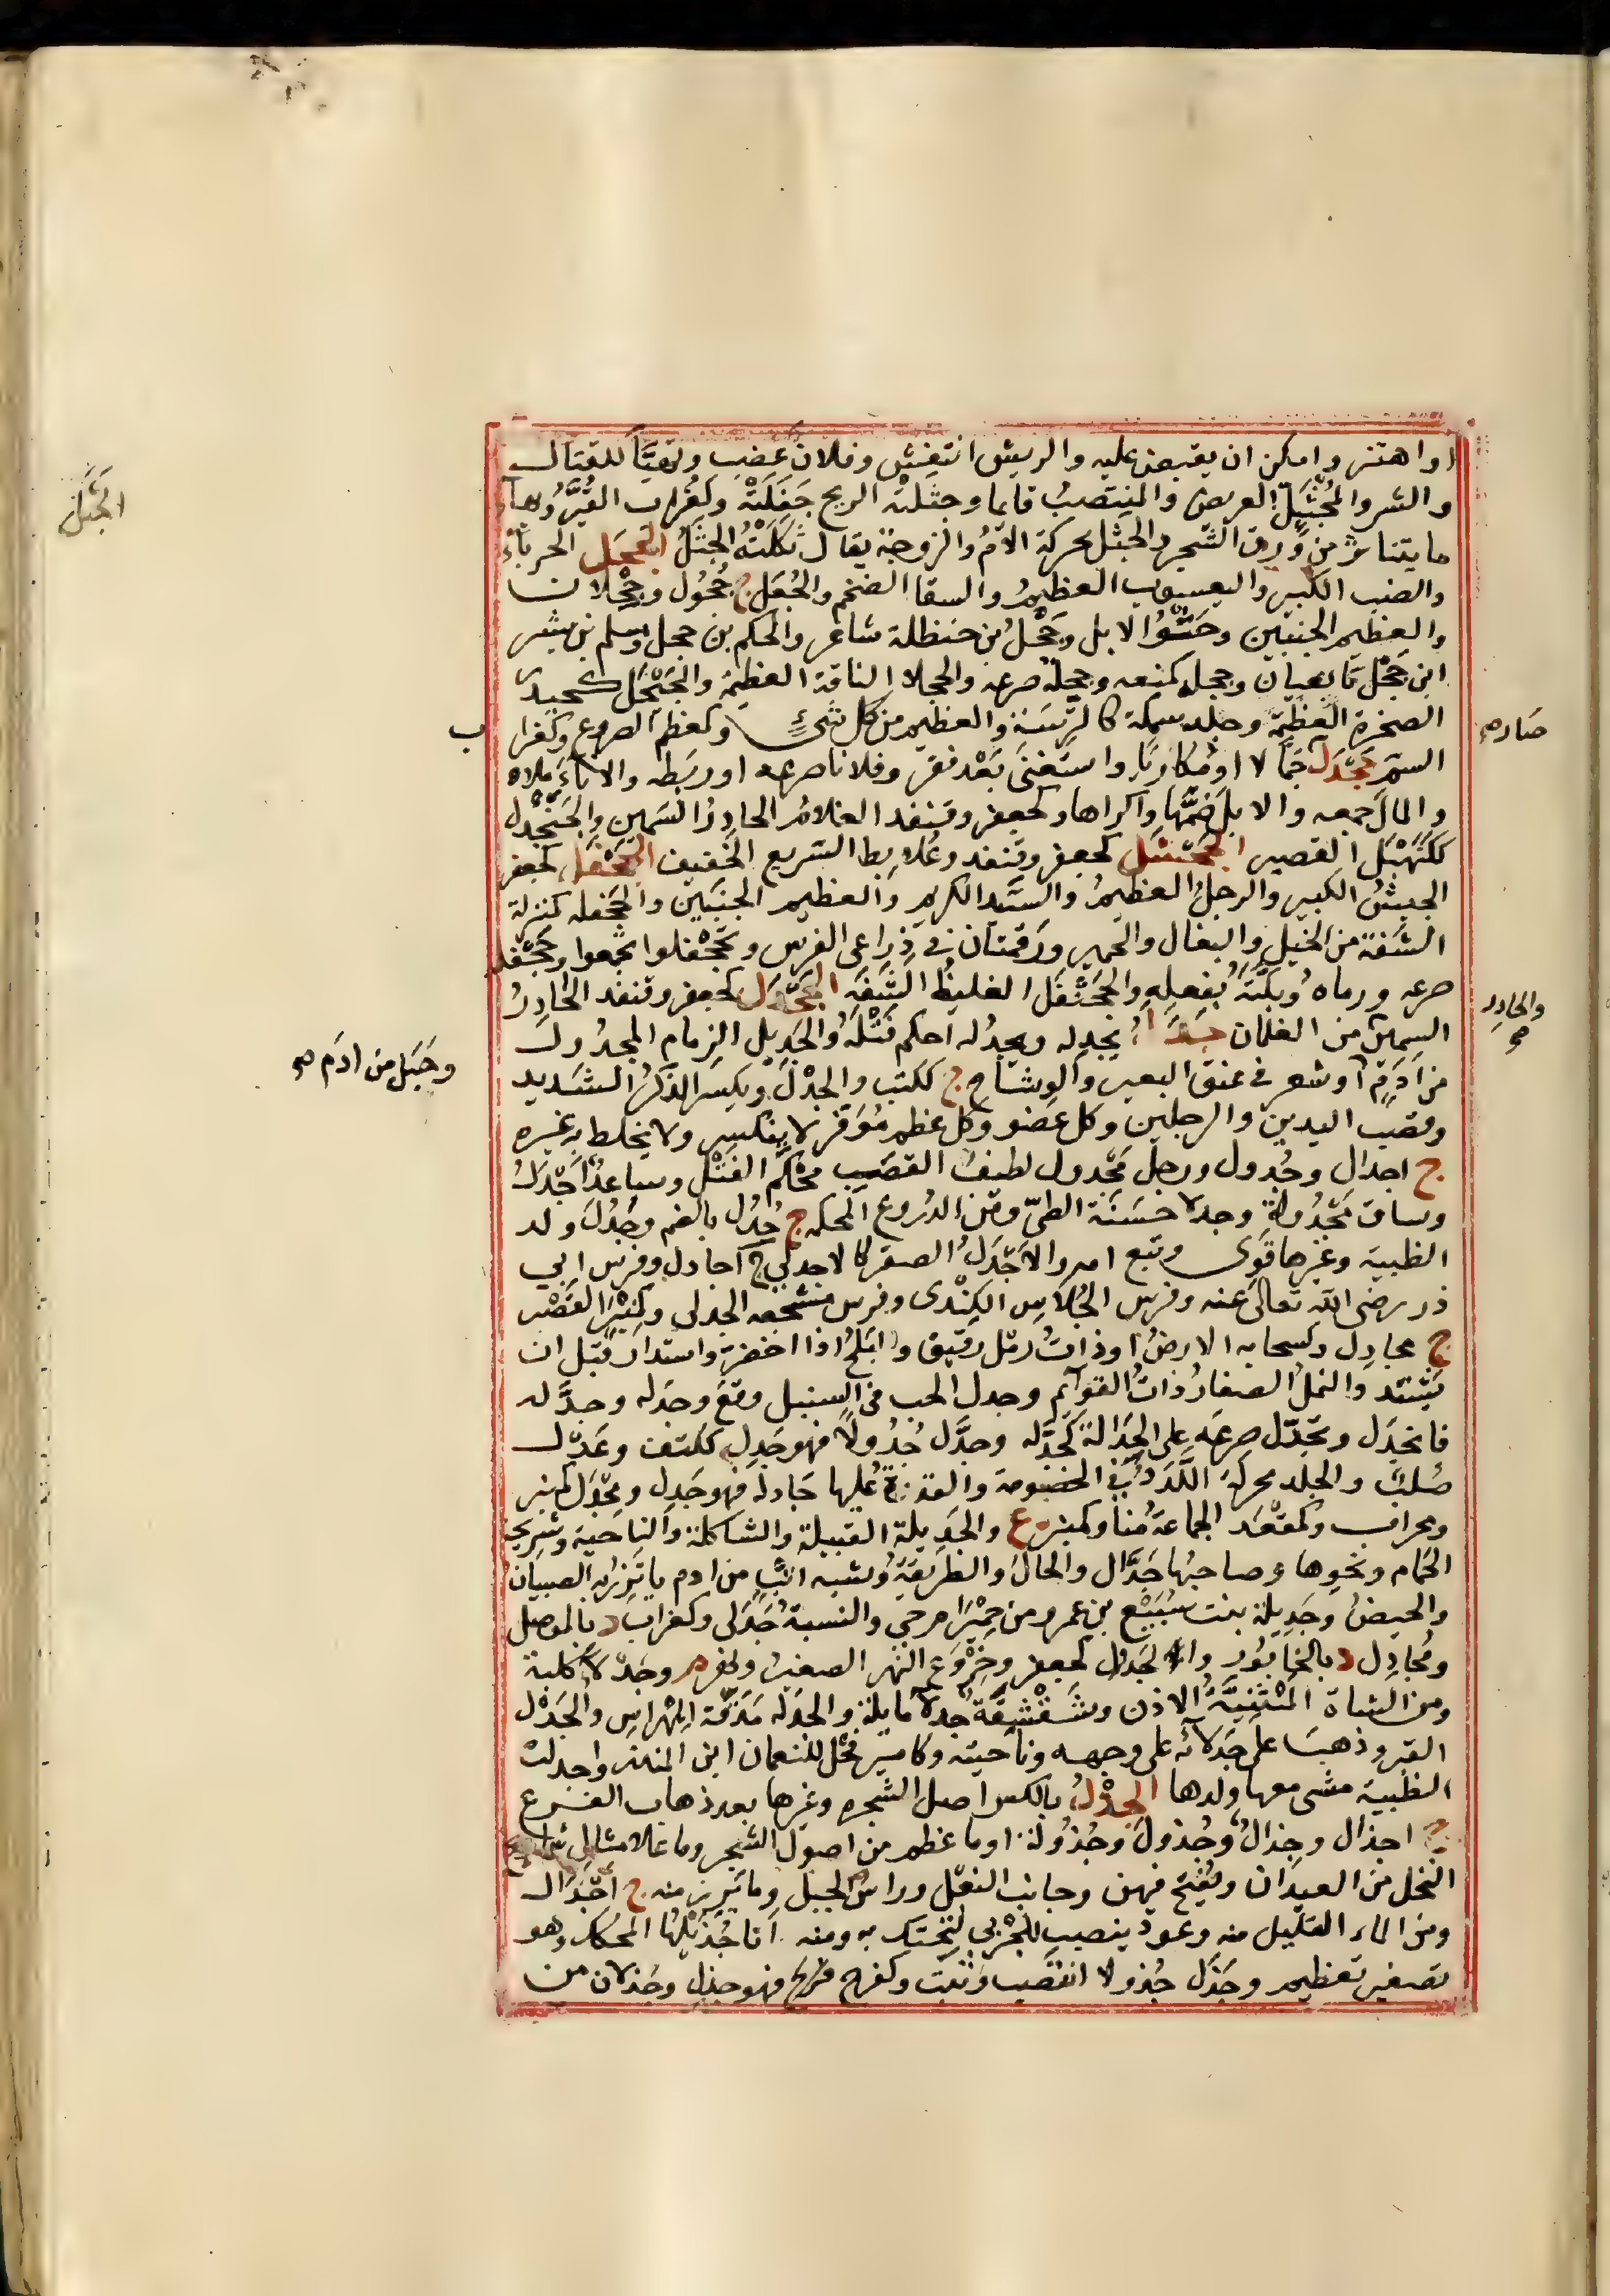 او اهتز وامكن ان يقبض عليه والريش انتفش وفلان غضب وتهيأ للقتال
والشر والمُجْثَئِلّ العريض والمنتصبُ قايما وجثلته الريح جَفَلَتْهُ وكغراب القُبَّر وبهاء
ما يتناثر من ورق الشجر والجثل محركة الامُّ والزوجة يقال ثكلته الجثلُ الجحل الحرباء
والضب الكبير واليعسوب العظيمُ والسقا الضخم والجُعَل ج جُحُول وجِحْلان
والعظيم الجنبين وحَشْوُ الابل وجَحْلُ بن حنظلة شاعر والحكم بن جحل وسلم بن بشر
ابن جَحْل تابعيان وجحله كمنعه وجحله صرعه والجحلاء الناقة العظيمة والجَيْحَل كحيدر
الصخرة العظيمة وجلد سمكة كالترسة والعظيم من كل شيء وكمعظم المصروع وكغراب
السم جَحْدَلَ جَمَّالا او مُكاريا واستَغنى بَعْد فقر وفلانا صرعه او ربطه والاناءَ ملاه
والمال جمعه والابل ضَمَّها واكراها وكجعفر وقنفد الغلامُ الحادِرُ السمين والجَنَحْدَل
ككَنَهْبَل القصير الجحشل كجعفر وقنفد وعُلابِط السريع الخفيف الجحفل كجعفر
الجيشُ الكبير والرجلُ العظيمُ والسيد الكريم والعظيم الجنبين والجحفله بمنزلة
الشفة من الخيل والبغال والحمير ورَقمتان في ذِراعي الفرس وتجحفلوا تجمعوا وجحفله
صرعه ورماه وبكّته بفعلِهِ والجَحَنْفَل الغليظُ الشفة الجحدل كجعفر وقنفد الحادِرُ
السمين من الغلمان جدله يجدِله ويجدُله احكم فَتْلَهُ والجَدِيل الزمام المجدول
من ادَمٍ او شعر في عنق البعير والوشاح ج ككتب والجدْلُ ويكسر الذكرُ الشديد
وقصب اليدين والرجلين وكل عضو وكل عظم مُوَفَّر لا يُكسَر ولا يخلط به غيره
ج اجدال وجُدول ورجل مَجْدول لطيف القصب محْكَم الفَتْل وساعدٌ اَجْدَلُ
وساق مَجْدُولة وجدلا حَسَنَة الطيّ ومن الدروع المحكمه ج جُدْل بالضم وجَدَلَ ولد
الظبية وغيرها قَوِي وتبع امه والاَجْدَلُ الصقر كالاجدلي ج اجادل وفرس ابي
ذر رضي الله تعالى عنه وفرس الجُلاسِ الكِنْدي وفرس مشجعه الجدلي وكمِنْبَر القَصْر
ج مجادِل وكسحابه الارضُ او ذاتُ رمْل رقيق والبَلَحُ اذا اخضرّ واستدار قبل ان
يشتد والنملُ الصغارُ ذاتُ القوايم وجدل الحب في السنبل وقع وجدله وجدَّله
فانجدل وتجدّل صرعه على الجَدَالة كجدّله وجدَل جُدُولًا فهو جَدِل ككتف وعَدْل
صُلبَ والجدل محركة اللَّدَدُ في الخصومة والقدرة عليها جادله فهو جَدِل ومِجْدَل كمنبر
ومحراب وكمقعَد الجماعة منا وكمنبر ع والجَدِيلة القبيلة والشاكلة والناحية وشريجة
الحمام ونحوها وصاحبُها جَدَّال والحال والطريقة وشبه اتبٍ من ادم ياتزر به الصبيان
والحيضُ وجَدِيلة بنت سُبَيْع بن عمرو من حِمْيَر ام حي والنسبة جَدَلِي وكغراب د بالموصل
ومُجادِل د بالخابور والجَدول كجعفر وخِرْوَع النهر الصغير ونهر م وجدلاء كلبة
ومن الشاة المُتَثَنِّيَةُ الاذن وشِقْشِقَةٌ جَدلا مايلة والجدله مَدَقّة المِهْراس والجَدْل
القبر وذهب على جَدلائه على وجهه وناحيته وكاميرٍ فحْل للنعمان ابن المنذر واجدلت
الظبية مشى معها ولدها الجذل بالكسر اصل الشجره وغيرها بعد ذهاب الفرع
ج اجذال وجِذالٌ وجُذول وجُذُولة او ما عظم من اصول الشجر وما على مثال شماريخ
النخل من العيدان ويُفتح فيهن وجانب النعل وراس الجبل وما برز منه ج اَجْذال
ومن الماء القليل منه وعود ينصب للجَرْبى لتحتك به ومنه انا جُذَيْلُها المحكك وهو
تصغير تعظيم وجَذَل جُذولا انتصب وثبت وكفرح فرح فهو جذِل وجَذلان من
الجَثْل
صاره صح
والحادر صح
وحَبْل من ادَم صح